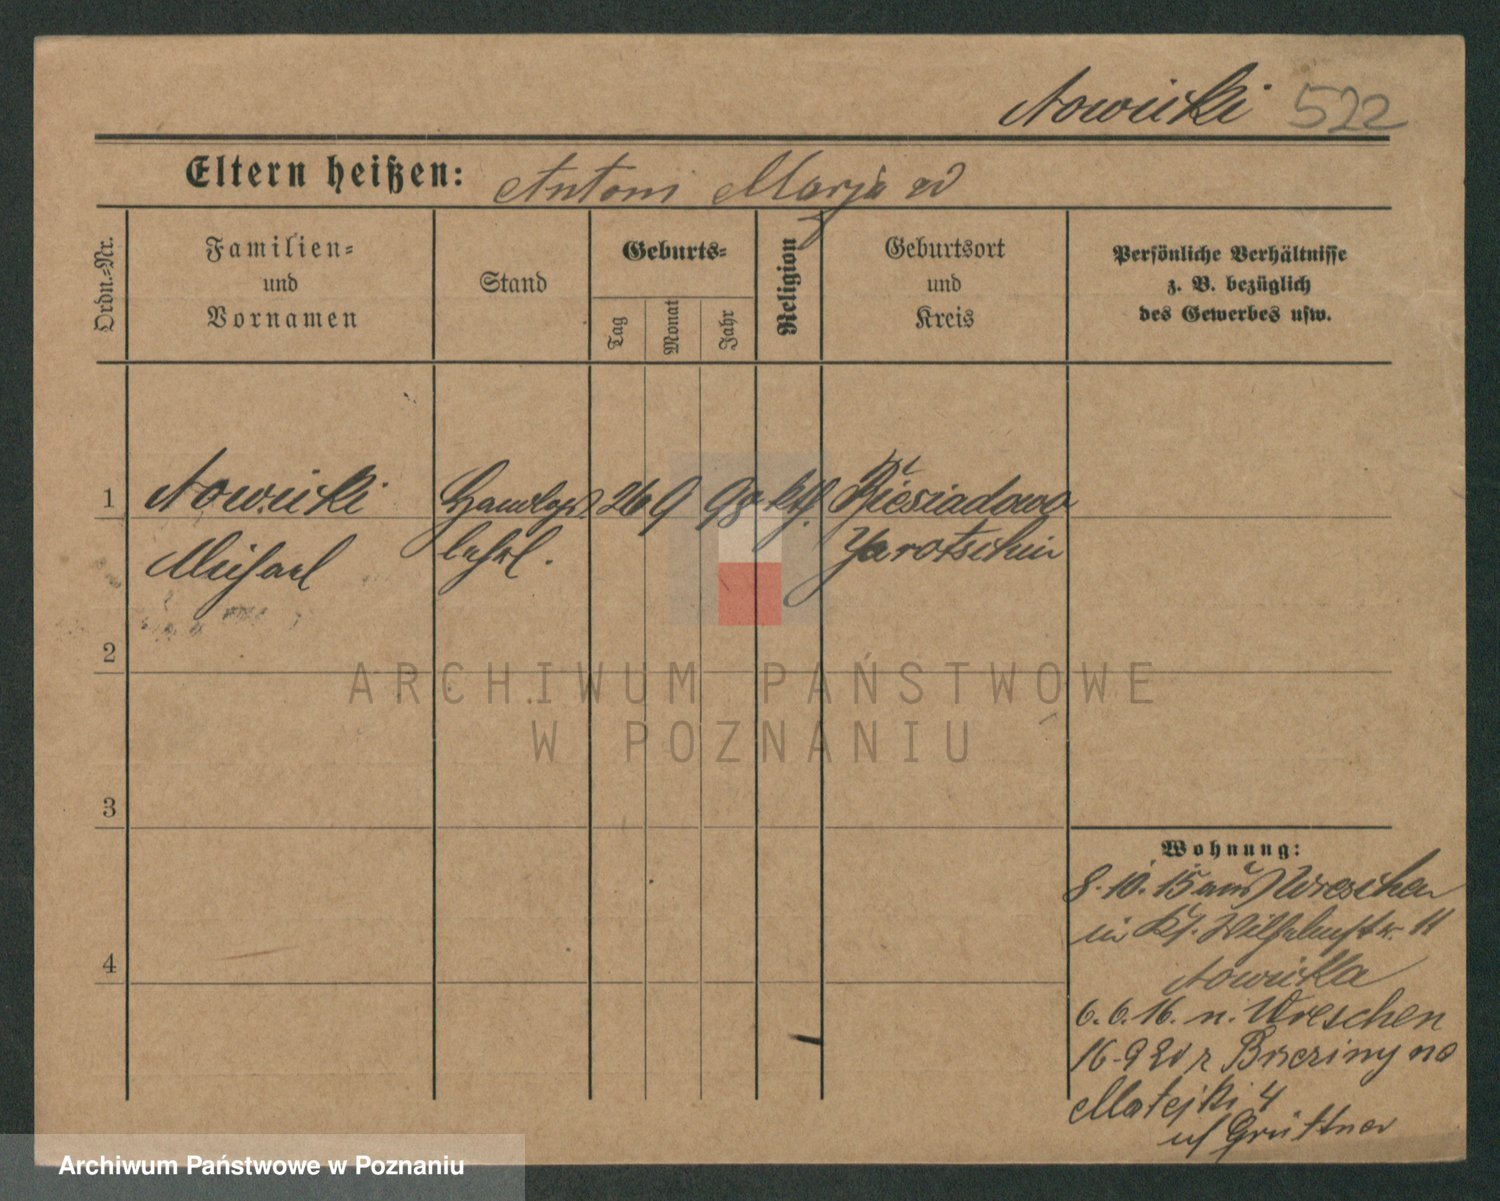 Nowicki 522
Eltern heißen: Antoni Marja
Ordn.-Nr.
Familien-
und
Vornamen
Stand
Geburts-
Tag
Monat
Jahr
Religion
Geburtsort
und
Kreis
Persönliche Verhältnisse
z. B. bezüglich
des Gewerbes usw.
1 Nowicki 26 9 98 kth. Biesiadowo
Michael lehrl. Jarotschin
2
3
4
Wohnung:
8. 10. 15 aus Wreschen
in Wilhelmstr. 11
Nowicka
6. 6. 16. n. Wreschen
16-9 20 z
Matejki 4
Grüttner
ARCHIWUM PAŃSTWOWE
W POZNANIU
Archiwum Państwowe w Poznaniu